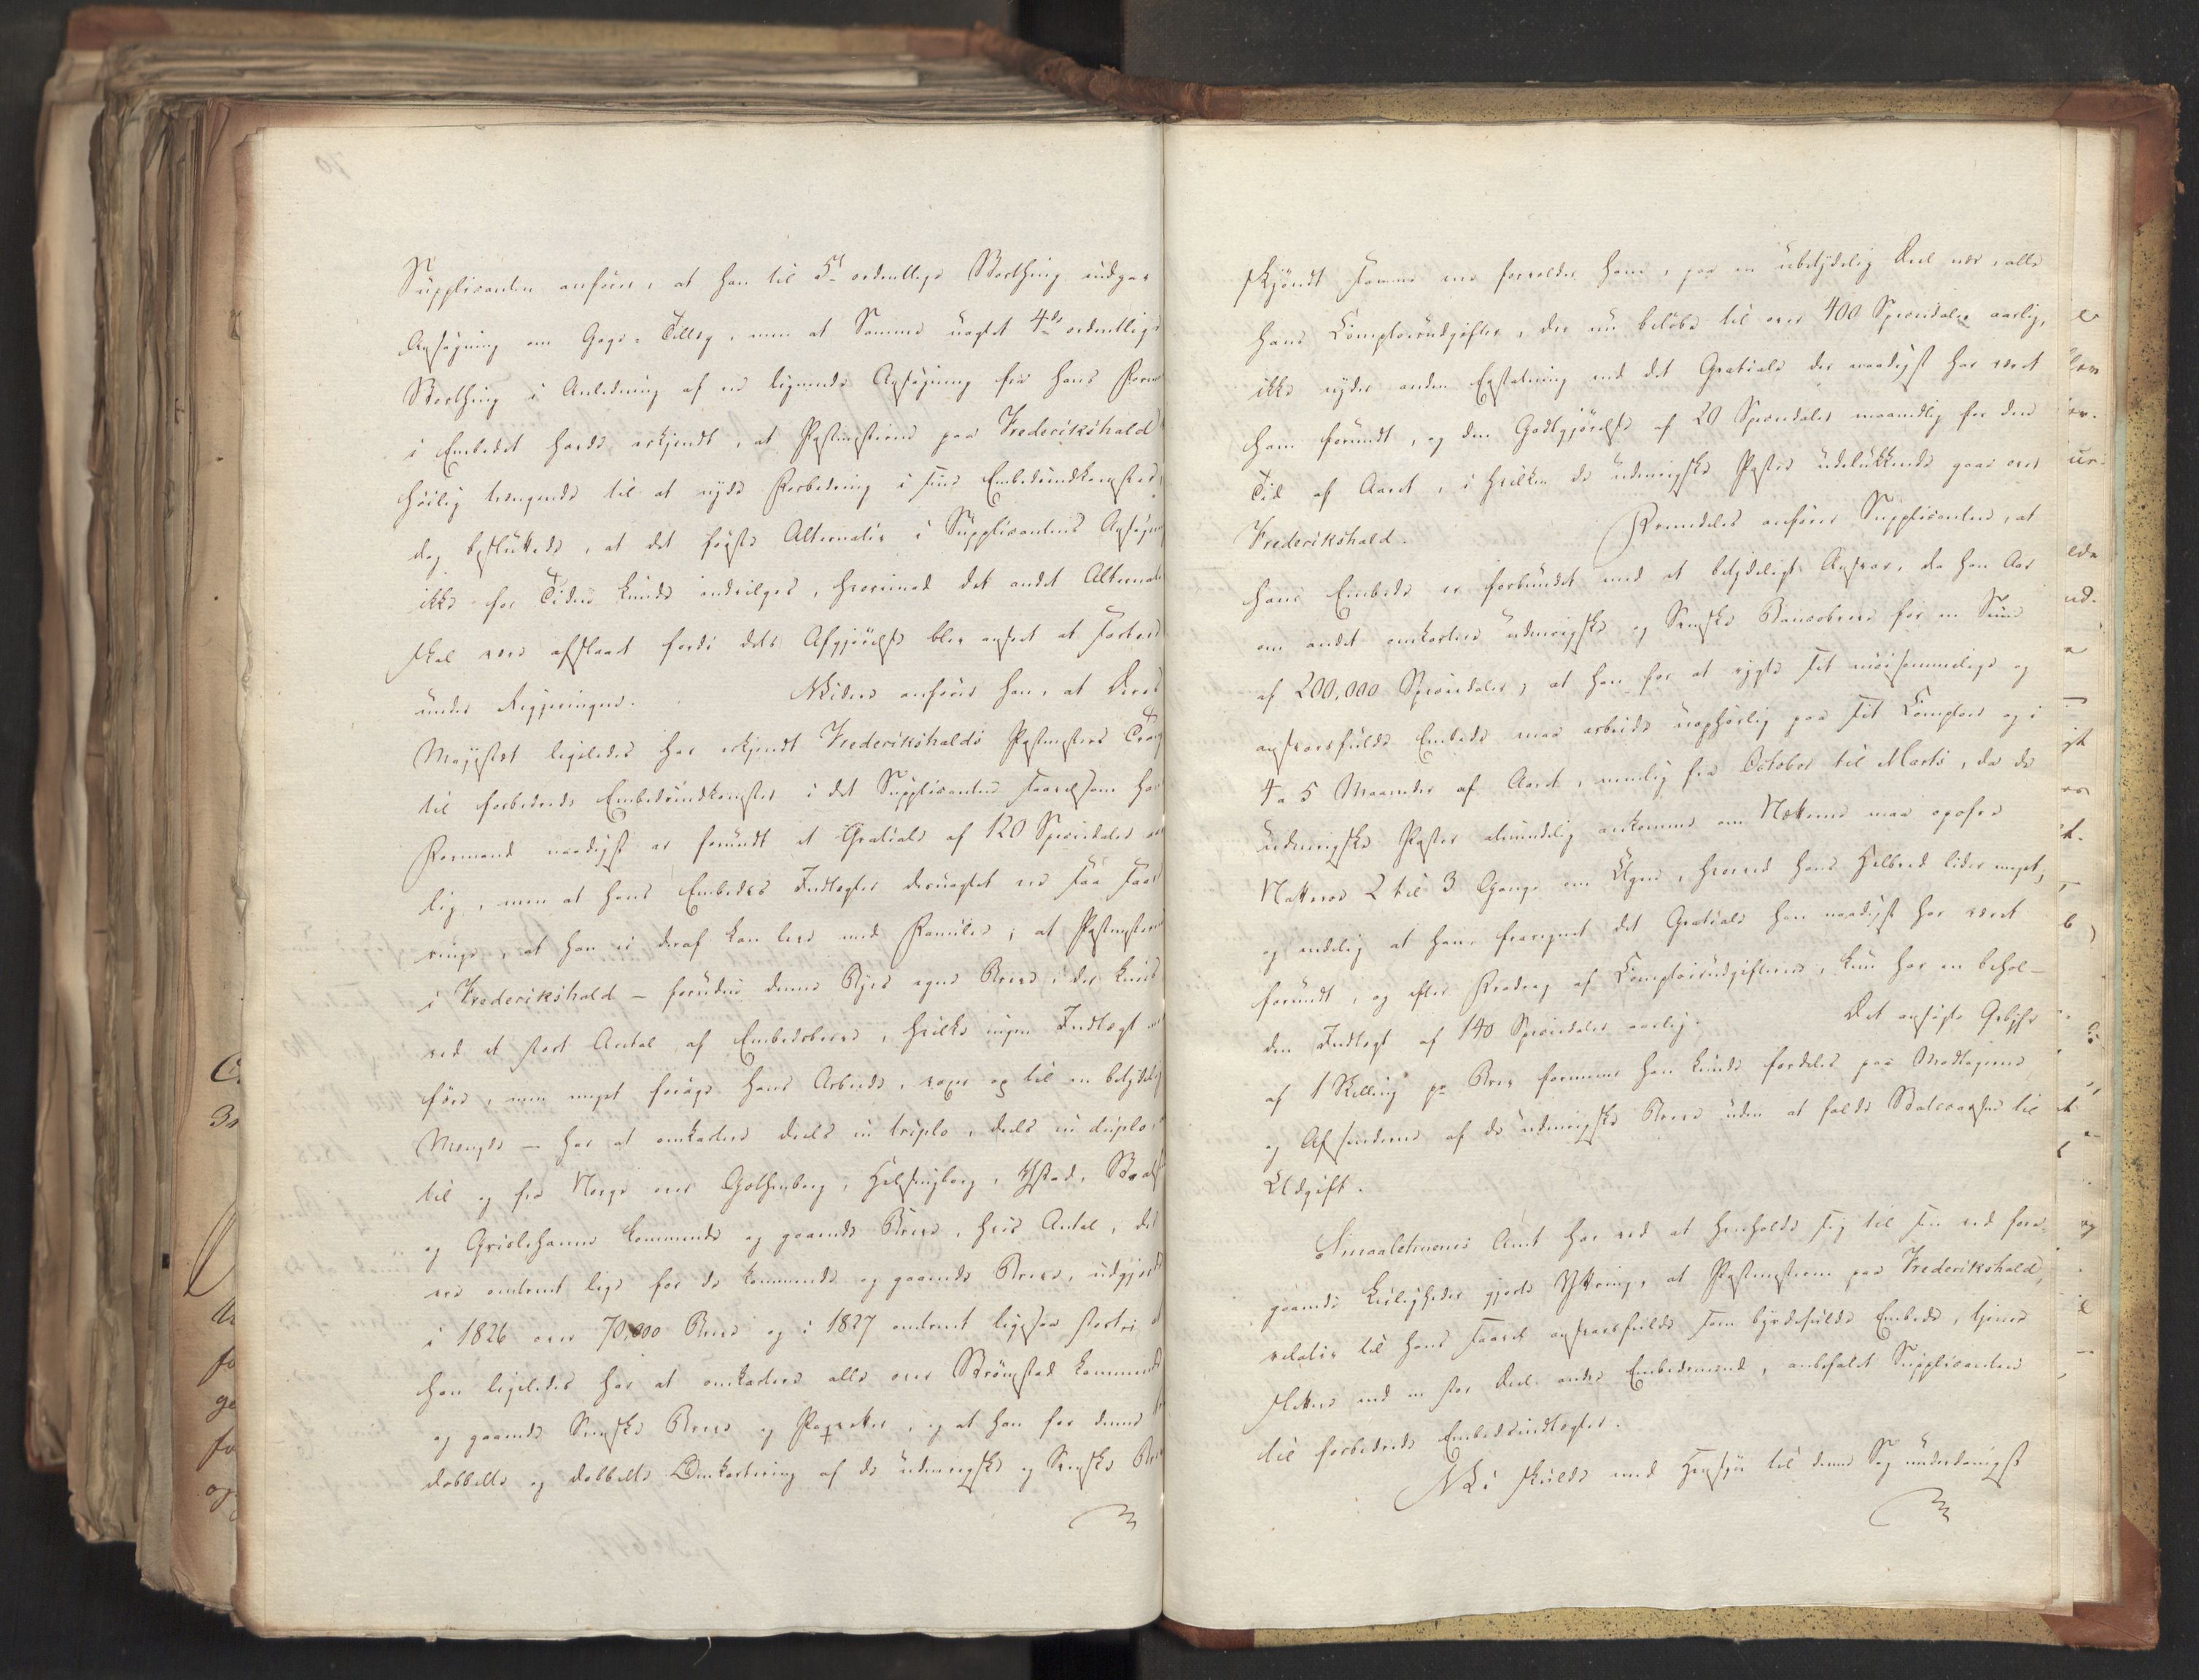 Supplicanten anförer, at han til 5te ordentlige Storthing indgav
Ansøgning om Gage-Tillæg, men at Samme uagtet 4de ordentlige
Storthing i Anledning af en lignende Ansøgning fra hans Form
i Embedet havde erkjendt, at Postmesteren paa Frederikshald
höilig trængende til at nyde Forbedring i sine Embedsindkomster,
dog besluttede, at det første Alternativ i Supplicantens Ansøgn
ikke for Tiden kunde indvilges, hvorimod det andet Alternati
skal være afslaaet fordi dets Afgjörelse blev anseet at sortere
under Regjeringen. Videre anförer han, at Deres
Majestæt ligeledes har erkjendt Frederikshalds Postmesters Trang
til forbedrede Embedsindkomster i det Supplicanten saavelsom hans
Formand naadigst er forundt et Gratiale af 120 Speciedaler aar
lig, men at hans Embedes Indtægter desuagtet ere saa saare
ringe, at han ei deraf kan leve med Familie; at Postmesteren
i Frederikshald – foruden denne Byes egne Breve, der kund
ved et stort Antal af Embedsbreve, hvilke ingen Indtægt med
före, men meget foröge hans Arbeide, voxe op til en betydelig
Mængde – har at omkartere deels in triplo, deels in duplo
til og fra Norge over Gothenborg, Helsingborg, Ystad, Stral
og Grislehamn kommende og gaaende Breve, hvis Antal, der
ere omtrent lige for de kommende og gaaende Breve, udgjorde
i 1826 over 70,000 Breve og i 1827 omtrent ligesaa stort; at
han ligeledes har at omkartere alle over Strömstad kommende
og gaaende Svenske Breve og Paqvetter, og at han for denne
dobbelte og dobbelte Omkartering af de udenrigske og Svenske Bre
skjöndt samme må forvolder ham, paa en ubetydelig Deel nær, alle
hans Comptoirudgifter, der nu belöbe til over 400 Speciedaler aarlig,
ikke nyder anden Erstatning end det Gratiale der naadigst har været
ham forundt, og den Godtgjörelse af 20 Speciedaler maanedlig for den
Tid af Aaret, i hvilken de udenrigske Poster udelukkende gaae over
Frederikshald. Fremdeles anförer Supplicanten, at
hans Embede er forbundet med et betydeligt Ansvar, da han Aar
om andet omkarterer udenrigske og Svenske Bancobreve for en Sum
af 200,000 Speciedaler; at han for at rygte sit möisommelige og
ansvarsfulde Embede maa arbeide uophörlig paa sit Comptoir og i
4 a 5 Maaneder af Aaret, nemlig fra October til Marts, da de
udenrigske Poster almindelig ankomme om Nætterne maa opofre
Nattero 2 til 3 Gange om Ugen, hvorved hans Helbred lider meget,
og endelig at han, fraregnet det Gratiale han naadigst har været
forundt, og efter Fradrag af Comptoirudgifterne, kun har en behol-
den Indtægt af 140 Speciedaler aarlig. Det ansøgte Gebyhr
af 1 Skilling pr Brev formener han kunde fordeles paa Modtagerne
og Afsenderne af de udenrigske Breve uden at falde Statscassen til
Udgift.
Smaalehnenes Amt har ved at henholde sig til sin ved fore-
gaaende Leiligheder gjorte Yttring, at Postmesteren paa Frederikshald,
relativ til hans saavel ansvarsfulde som byrdefulde Embede, tjener
slettere end en stor Deel andre Embedsmænd, anbefalet Supplicanten
til forbedrede Embedsindtægter.
Vi skulde med Hensyn til denne Sag underdanigst